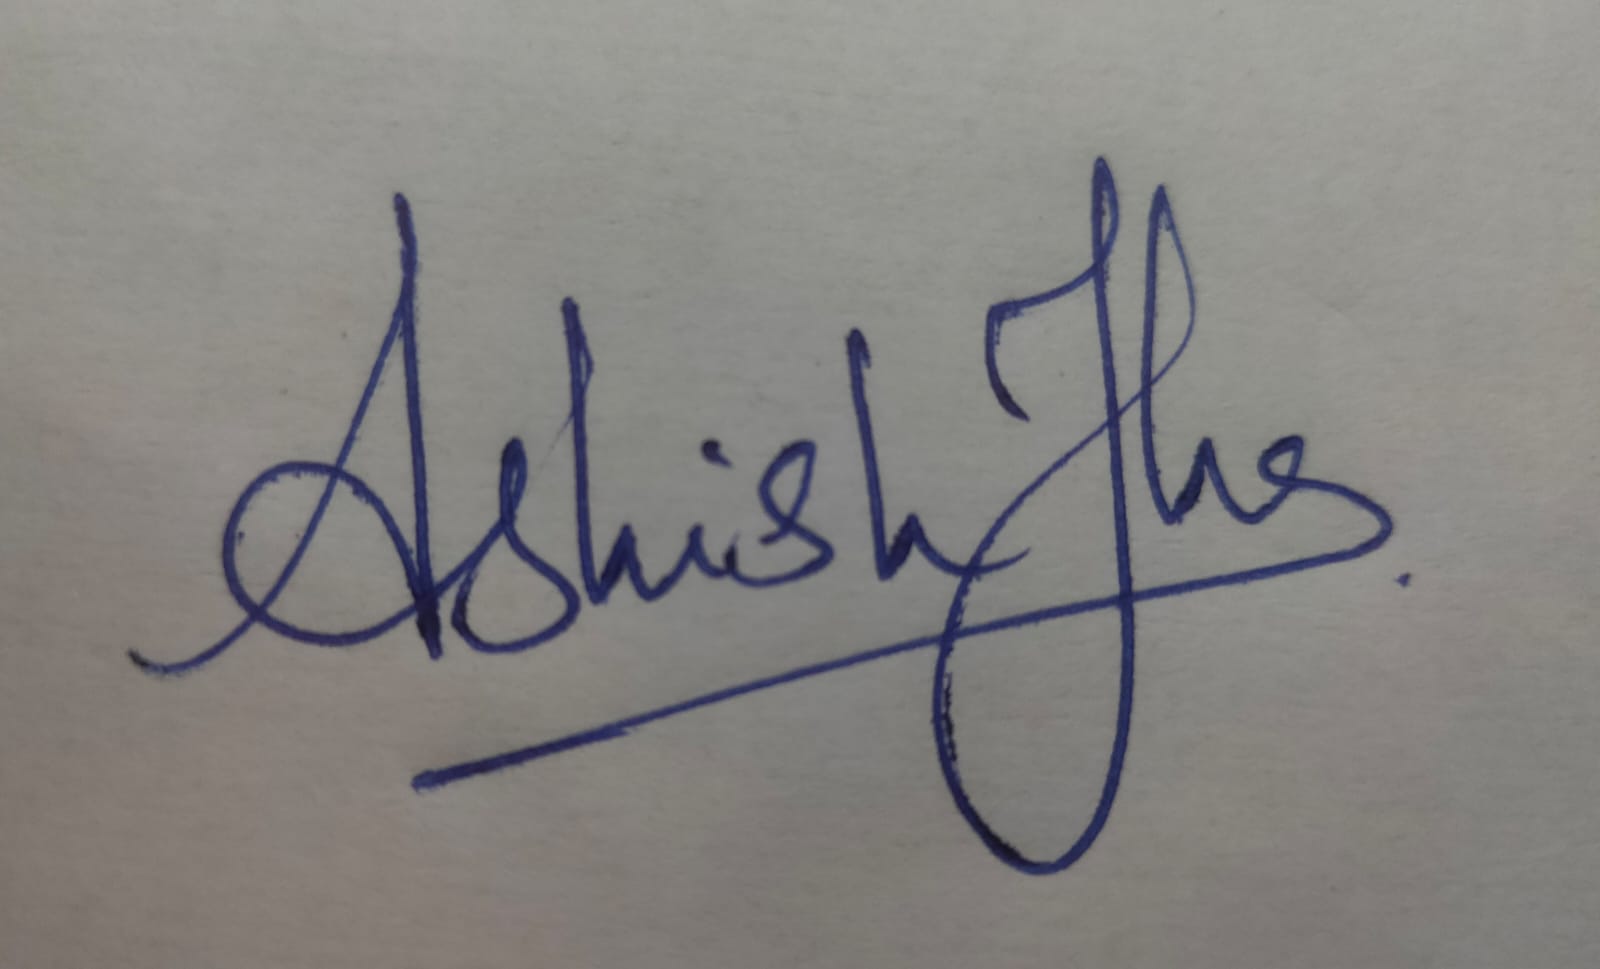 Ashish Jha